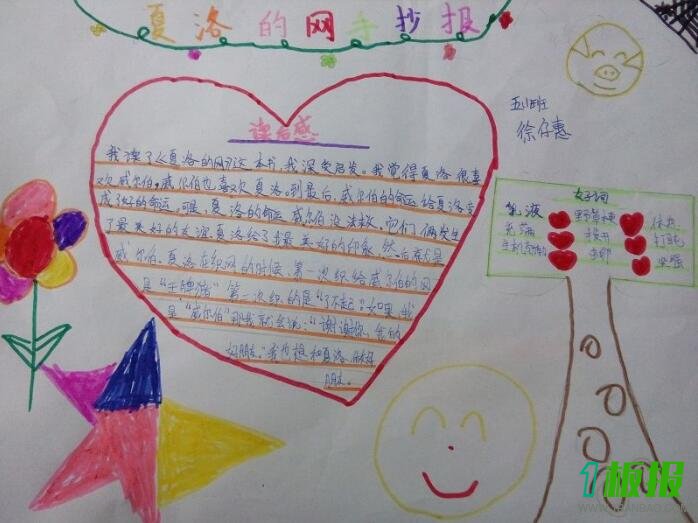 夏洛的网手抄报
五(1)班
徐仔惠
读后感
我读了《夏洛的网》这本书,我深受启发。我觉得夏洛很喜
欢威尔伯,威尔伯也喜欢夏洛。到最后,威尔伯的命运给夏洛变
成了好的命运,可是,夏洛的命运威尔伯没法救,它们俩发生
了最美好的友谊夏洛给了我最美好的印象,然后就是
威尔伯。夏洛在织网的时候,第一次织给威尔伯的网
是“王牌猪”第二次织的是“了不起”。如果,我
是“威尔伯”那我就会说:“谢谢你,我的
好朋友。”我也想和夏洛做好
朋友。
好词
乳液
充满
打盹
坚强
1板报
WWW.1BANBAO.COM